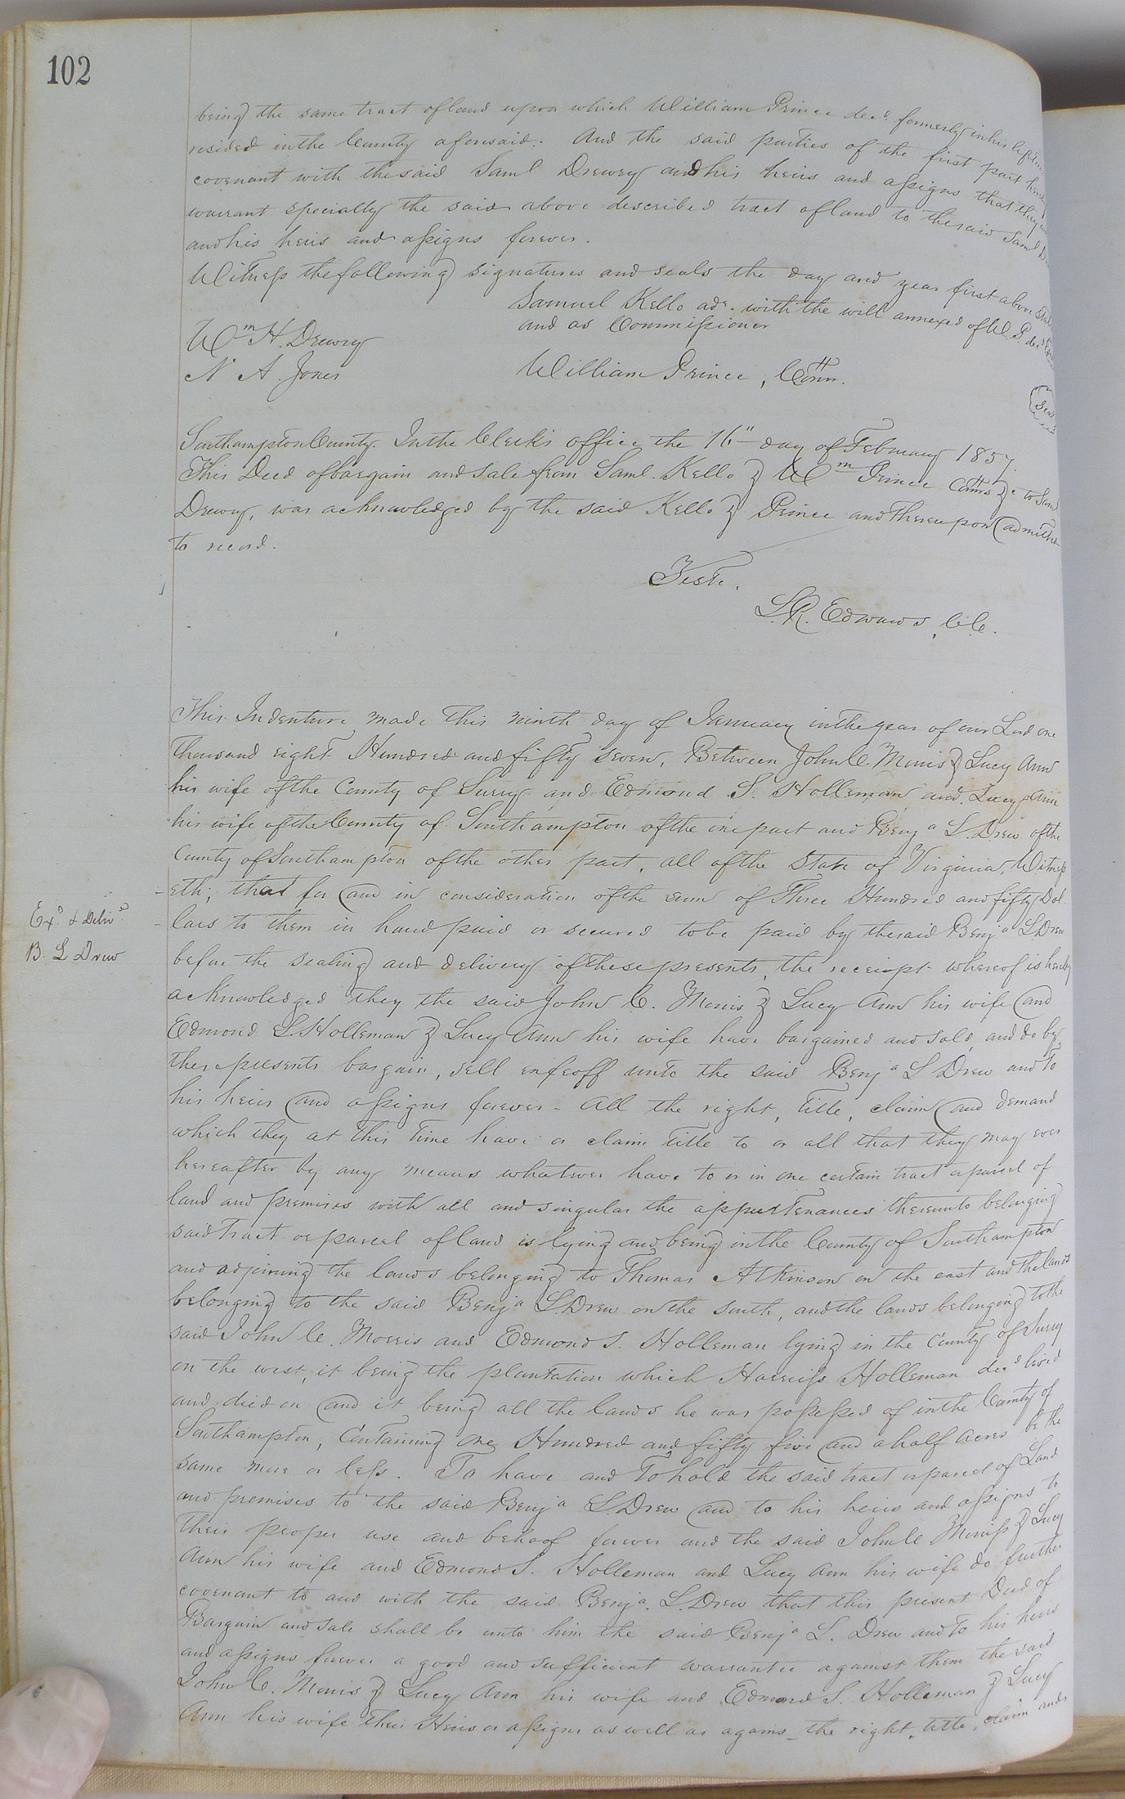 102
being the same tract of land upon which William Prince decd. formerly in his lifetime
resided in the County aforesaid. And the said parties of the first part
covenant with the said Saml Drewry and his heirs and assigns that they
warrant specially the said above described tract of land to the said Saml
and his heirs and assigns forever.
Witness the following signatures and seals the day and year first above
Samuel Kello adr. with the will annexed of W P decd
and as Commissioner
Wm H. Drewry
N A Jones
William Prince, Comr.
Seal
Southampton County. In the Clerk's office, the 16th day of February 1857.
This Deed of bargain and sale from Saml. Kello & Wm Prince Comrs &c to Saml
Drewry, was acknowledged by the said Kello & Prince and thereupon admitted
to record.
Teste.
L.R. Edwards, Clk.
This Indenture made this ninth day of January in the year of our Lord one
thousand eight Hundred and fifty seven, Between John C. Morris & Lucy Ann
his wife of the County of Surry and Edmond S. Holleman and Lucy Ann
his wife of the County of Southampton of the one part and Benja L. Drew of the
County of Southampton of the other part, all of the State of Virginia, Witness
-eth; that for and in consideration of the sum of Three Hundred and fifty Dol
-lars to them in hand paid or secured to be paid by the said Benja L Drew
Exd & Delivd
B. L Drew
before the sealing and delivery of these presents, the receipt whereof is hereby
acknowledged they the said John C. Morris & Lucy Ann his wife and
Edmond S. Holleman & Lucy Ann his wife have bargained and sold, and do by
these presents bargain, sell enfeoff unto the said Benja L Drew and to
his heirs and assigns forever - All the right, title, claim and demand
which they at this time have or claim title to or all that they may ever
hereafter by any means whatever have to or in one certain tract or parcel of
land and premises with all and singular the appurtenances thereunto belonging
said tract or parcel of land is lying and being in the County of Southampton
and adjoining the lands belonging to Thomas Atkinson on the east and the lands
belonging to the said Benja L Drew on the south, and the lands belonging to the
said John C. Morris and Edmond S. Holleman lying in the County of Surry
on the west, it being the plantation which Harriss Holleman decd lived
and died on and it being all the lands he was possessed of in the County of
Southampton, Containing One Hundred and fifty five and a half acres be the
same more or less. To have and to hold the said tract or parcel of Land
and premises to the said Benja L Drew and to his heirs and assigns to
their proper use and behoof forever and the said John C Morriss & Lucy
Ann his wife and Edmond S. Holleman and Lucy Ann his wife do further
covenant to and with the said Benja. L. Drew that this present Deed of
Bargain and sale shall be unto him the said Benja L. Drew and to his heirs
and assigns forever a good and sufficient warrantee against them the said
John C. Morris & Lucy Ann his wife and Edmond S. Holleman & Lucy
Ann his wife their Heirs or assigns as well as agains_ the right, title, claim and